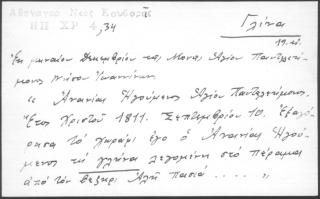 Ἀθηναγο Νεος Κουβαρᾶς
ΗΠ ΧΡ 4, 34
Γλίνα
19. αἰ.
Ἐκ μηναίου Δεκεμβρίου της Μονης Ἁγίου Παντελεή-
μονος Νήσου Ἰωαννίνων
„ Ἀνανίας Ἡγούμενος Ἁγίου Παντελεήμονος.
Ἔτος Χριστοῦ 1811. Σεπτεμβρίου 10. Ἐξαγό-
ρασα τὸ χωράφι ἐγο ὁ Ἀνανίας Ἡγού-
μενος τη γλήνα λεγομένη στὸ πέραμα
ἀπὸ τὸν Βεζύρι Ἀλῆ πασιά ..... „